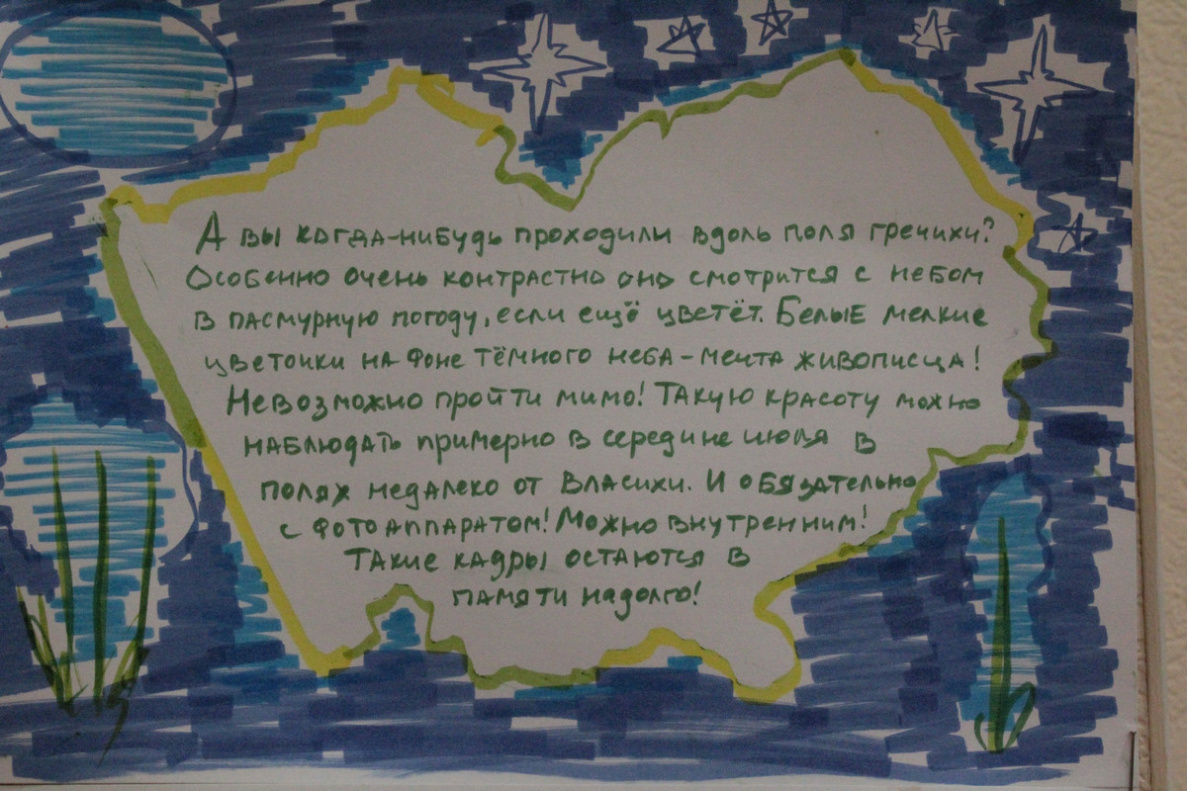 А вы когда-нибудь проходили вдоль поля гречихи?
Особенно очень контрастно оно смотрится с небом
в пасмурную погоду, если ещё цветёт. Белые мелкие
цветочки на фоне тёмного неба - мечта живописца!
Невозможно пройти мимо! Такую красоту можно
наблюдать примерно в середине июля в
полях недалеко от Власихи. И обязательно
с фотоаппаратом! Можно внутренним!
Такие кадры остаются в
памяти надолго!